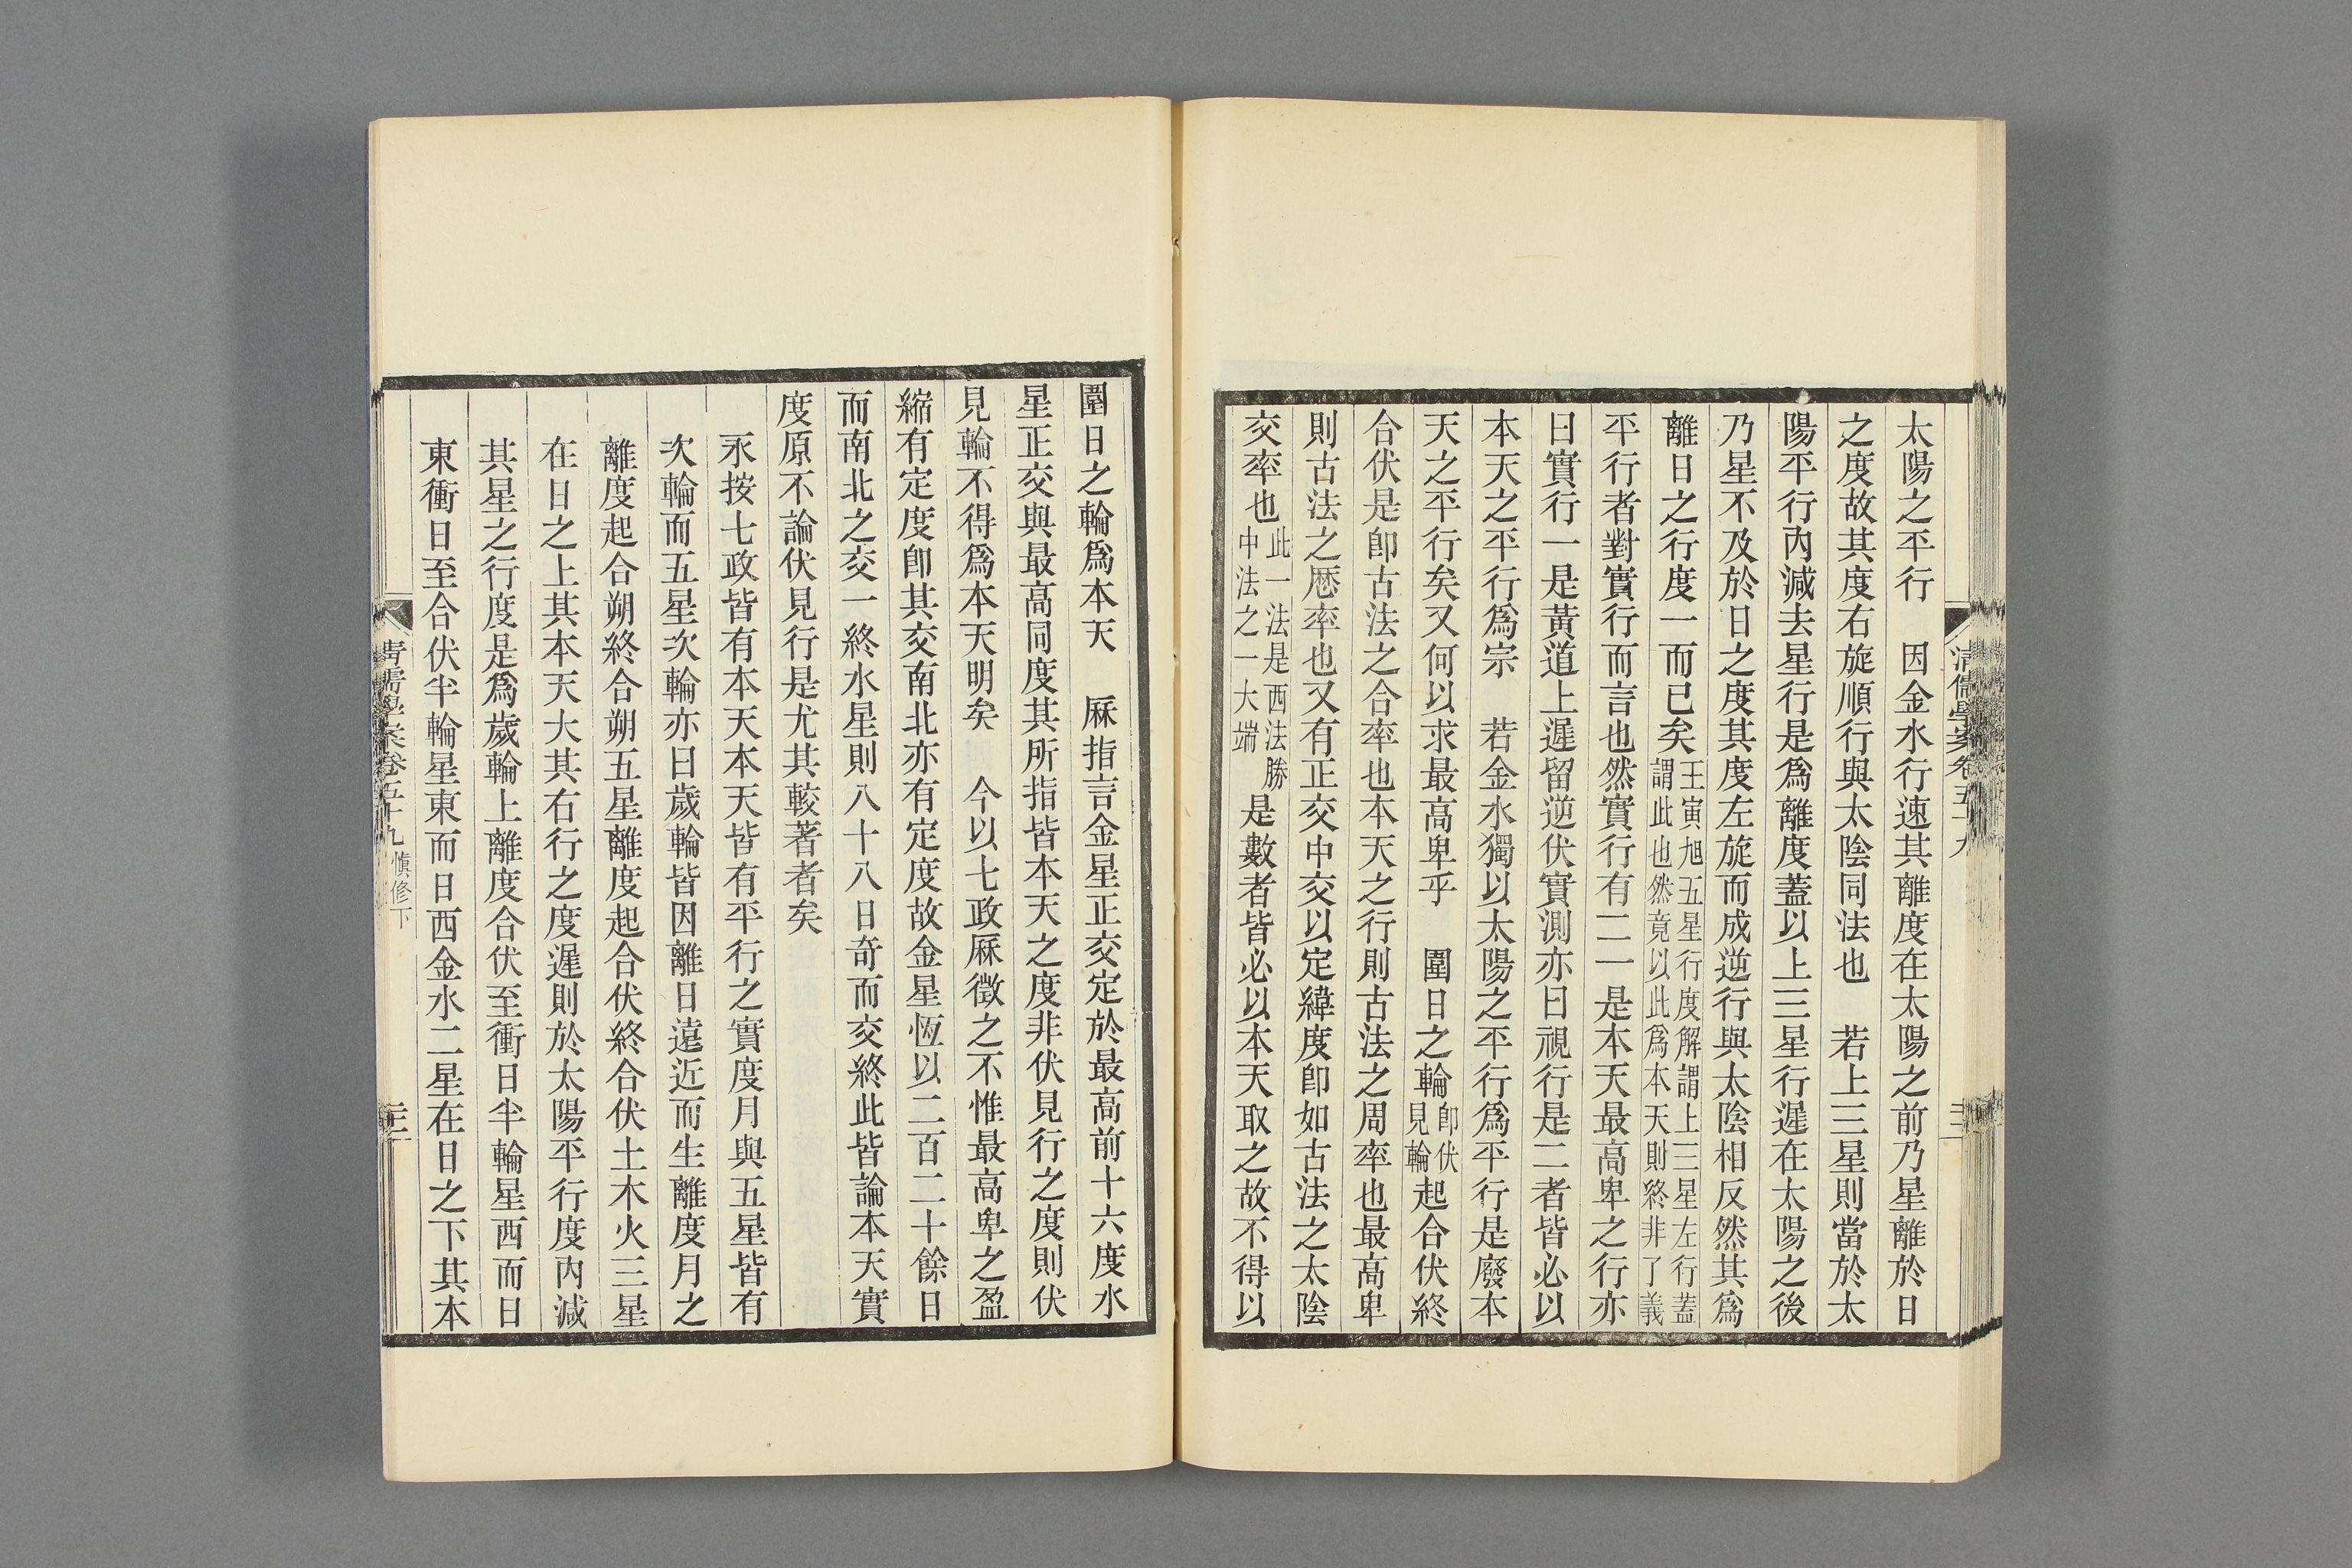 太陽之平行　因金水行速其離度在太陽之前乃星離於日
之度故其度右旋順行與太陰同法也　若上三星則當於太
陽平行內減去星行是爲離度蓋以上三星行遲在太陽之後
乃星不及於日之度其度左旋而成逆行與太陰相反然其爲
離日之行度一而已矣王寅旭五星行度解謂上三星左行蓋謂此也然竟以此爲本天則終非了義
平行者對實行而言也然實行有二一是本天最高卑之行亦
曰實行一是黃道上遲留逆伏實測亦曰視行是二者皆必以
本天之平行爲宗　若金水獨以太陽之平行爲平行是廢本
天之平行矣又何以求最高卑乎　圍日之輪卽伏見輪起合伏終
合伏是卽古法之合率也本天之行則古法之周率也最高卑
則古法之厯率也又有正交中交以定緯度卽如古法之太陰
交率也此一法是西法勝中法之一大端是數者皆必以本天取之故不得以
圍日之輪爲本天　厤指言金星正交定於最高前十六度水
星正交與最高同度其所指皆本天之度非伏見行之度則伏
見輪不得爲本天明矣　今以七政厤徵之不惟最高卑之盈
縮有定度卽其交南北亦有定度故金星恆以二百二十餘日
而南北之交一終水星則八十八日奇而交終此皆論本天實
度原不論伏見行是尤其較著者矣
永按七政皆有本天本天皆有平行之實度月與五星皆有
次輪而五星次輪亦曰歲輪皆因離日遠近而生離度月之
離度起合朔終合朔五星離度起合伏終合伏土木火三星
在日之上其本天大其右行之度遲則於太陽平行度內減
其星之行度是爲歲輪上離度合伏至衝日半輪星西而日
東衝日至合伏半輪星東而日西金水二星在日之下其本
清儒學案卷五十九
清儒學案卷五十九　慎修下